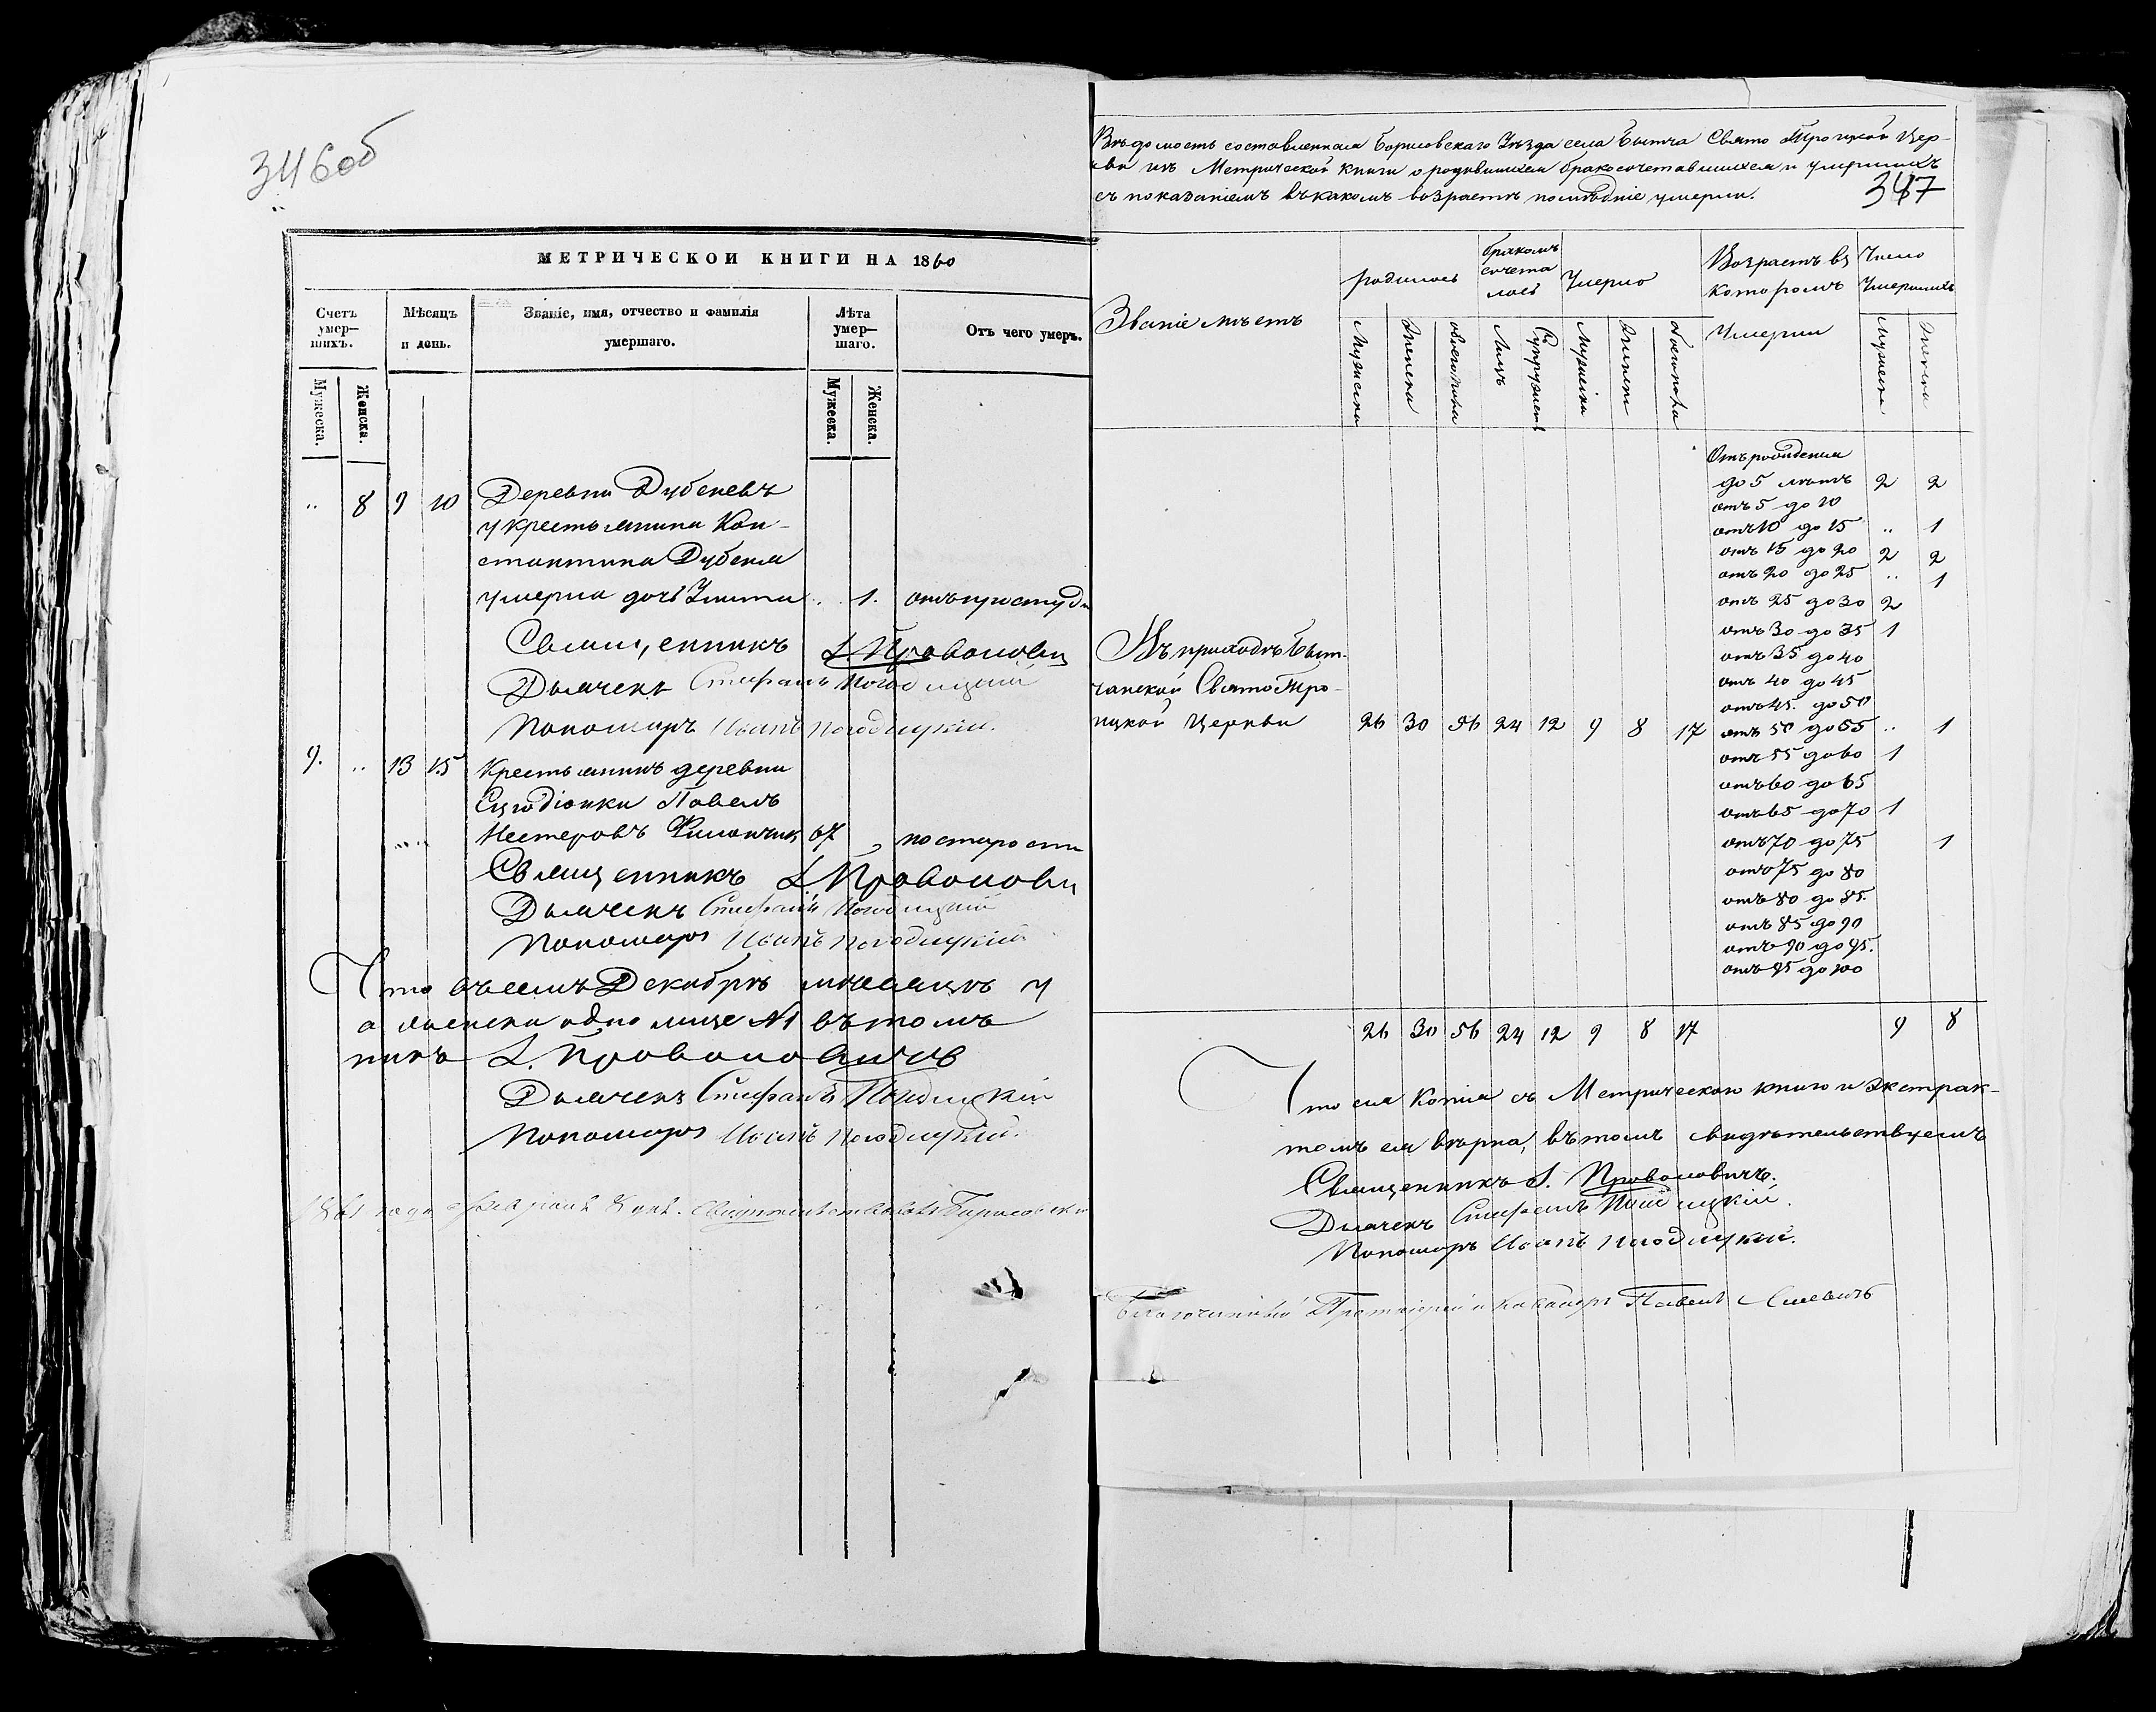 346 об
МЕТРИЧЕСКОЙ КНИГИ НА 1860
Счетъ умер-шихъ.
Мѣсяцъ и день.
Званіе, имя, отчество и фамилія умершаго.
Лѣта умер-шаго.
Отъ чего умеръ.
Мужеска.
Женска.
Мужеска.
Женска.
" 8 9 10 Деревни Дубеневъ
у крестьянина Кон-
стантина Дубеня
умерла дочь 1. отъ простуды
Священникъ
Дьячекъ Стефанъ
Пономарь Иванъ
9. " 13 15 Крестьянинъ деревни
Павелъ
Нестеровъ 67 по старости
Священникъ
Дьячекъ Стефанъ
Пономарь Иванъ
Что въ семъ Декабрѣ мѣсяцѣ у
а женска одно лице №1 въ томъ
никъ
Дьячекъ Стефанъ
Пономарь Иванъ
1861 года Февраля дня.
Вѣдомость составленная Борисовскаго Уѣзда села Бытча Свято Троицкой Цер-
кви изъ Метрической книги о родившихся бракосочетавшихся и умершихъ
съ показаніемъ въ какомъ возрастѣ послѣдніе умерли.
347
Званіе мѣстъ
родилось
бракомъ сочета лось
Умерло
Возрастъ въ которомъ Умерли
Число Умершихъ
Мужеска
Женска
обоего пола
Лицъ
Супружествъ
Мужеска
Женска
обоего пола
Мужеска
Женска
Отъ рожденія
до 5 лѣтъ 2 2
отъ 5 до 10
отъ 10 до 15 " 1
отъ 15 до 20 2 2
отъ 20 до 25 " 1
отъ 25 до 30 2
отъ 30 до 35 1
отъ 35 до 40
отъ 40 до 45
отъ 45. до 50
Въ приходѣ Быт-
чанской Свято Тро-
ицкой Церкви 26 30 56 24 12 9 8 17 отъ 50 до 55 " 1
отъ 55 до 60 1
отъ 60 до 65
отъ 65 до 70 1
отъ 70 до 75 1
отъ 75 до 80
отъ 80 до 85.
отъ 85 до 90
отъ 90 до 95.
отъ 95 до 100
26 30 56 24 12 9 8 17 9 8
Что сія Копія съ Метрическою книгою и экстрак-
томъ ея вѣрна, въ томъ свидѣтельствуемъ
Священникъ
Дьячекъ Стефанъ
Пономарь Иванъ
Благочинный Протоіерей и Кавалеръ Павелъ